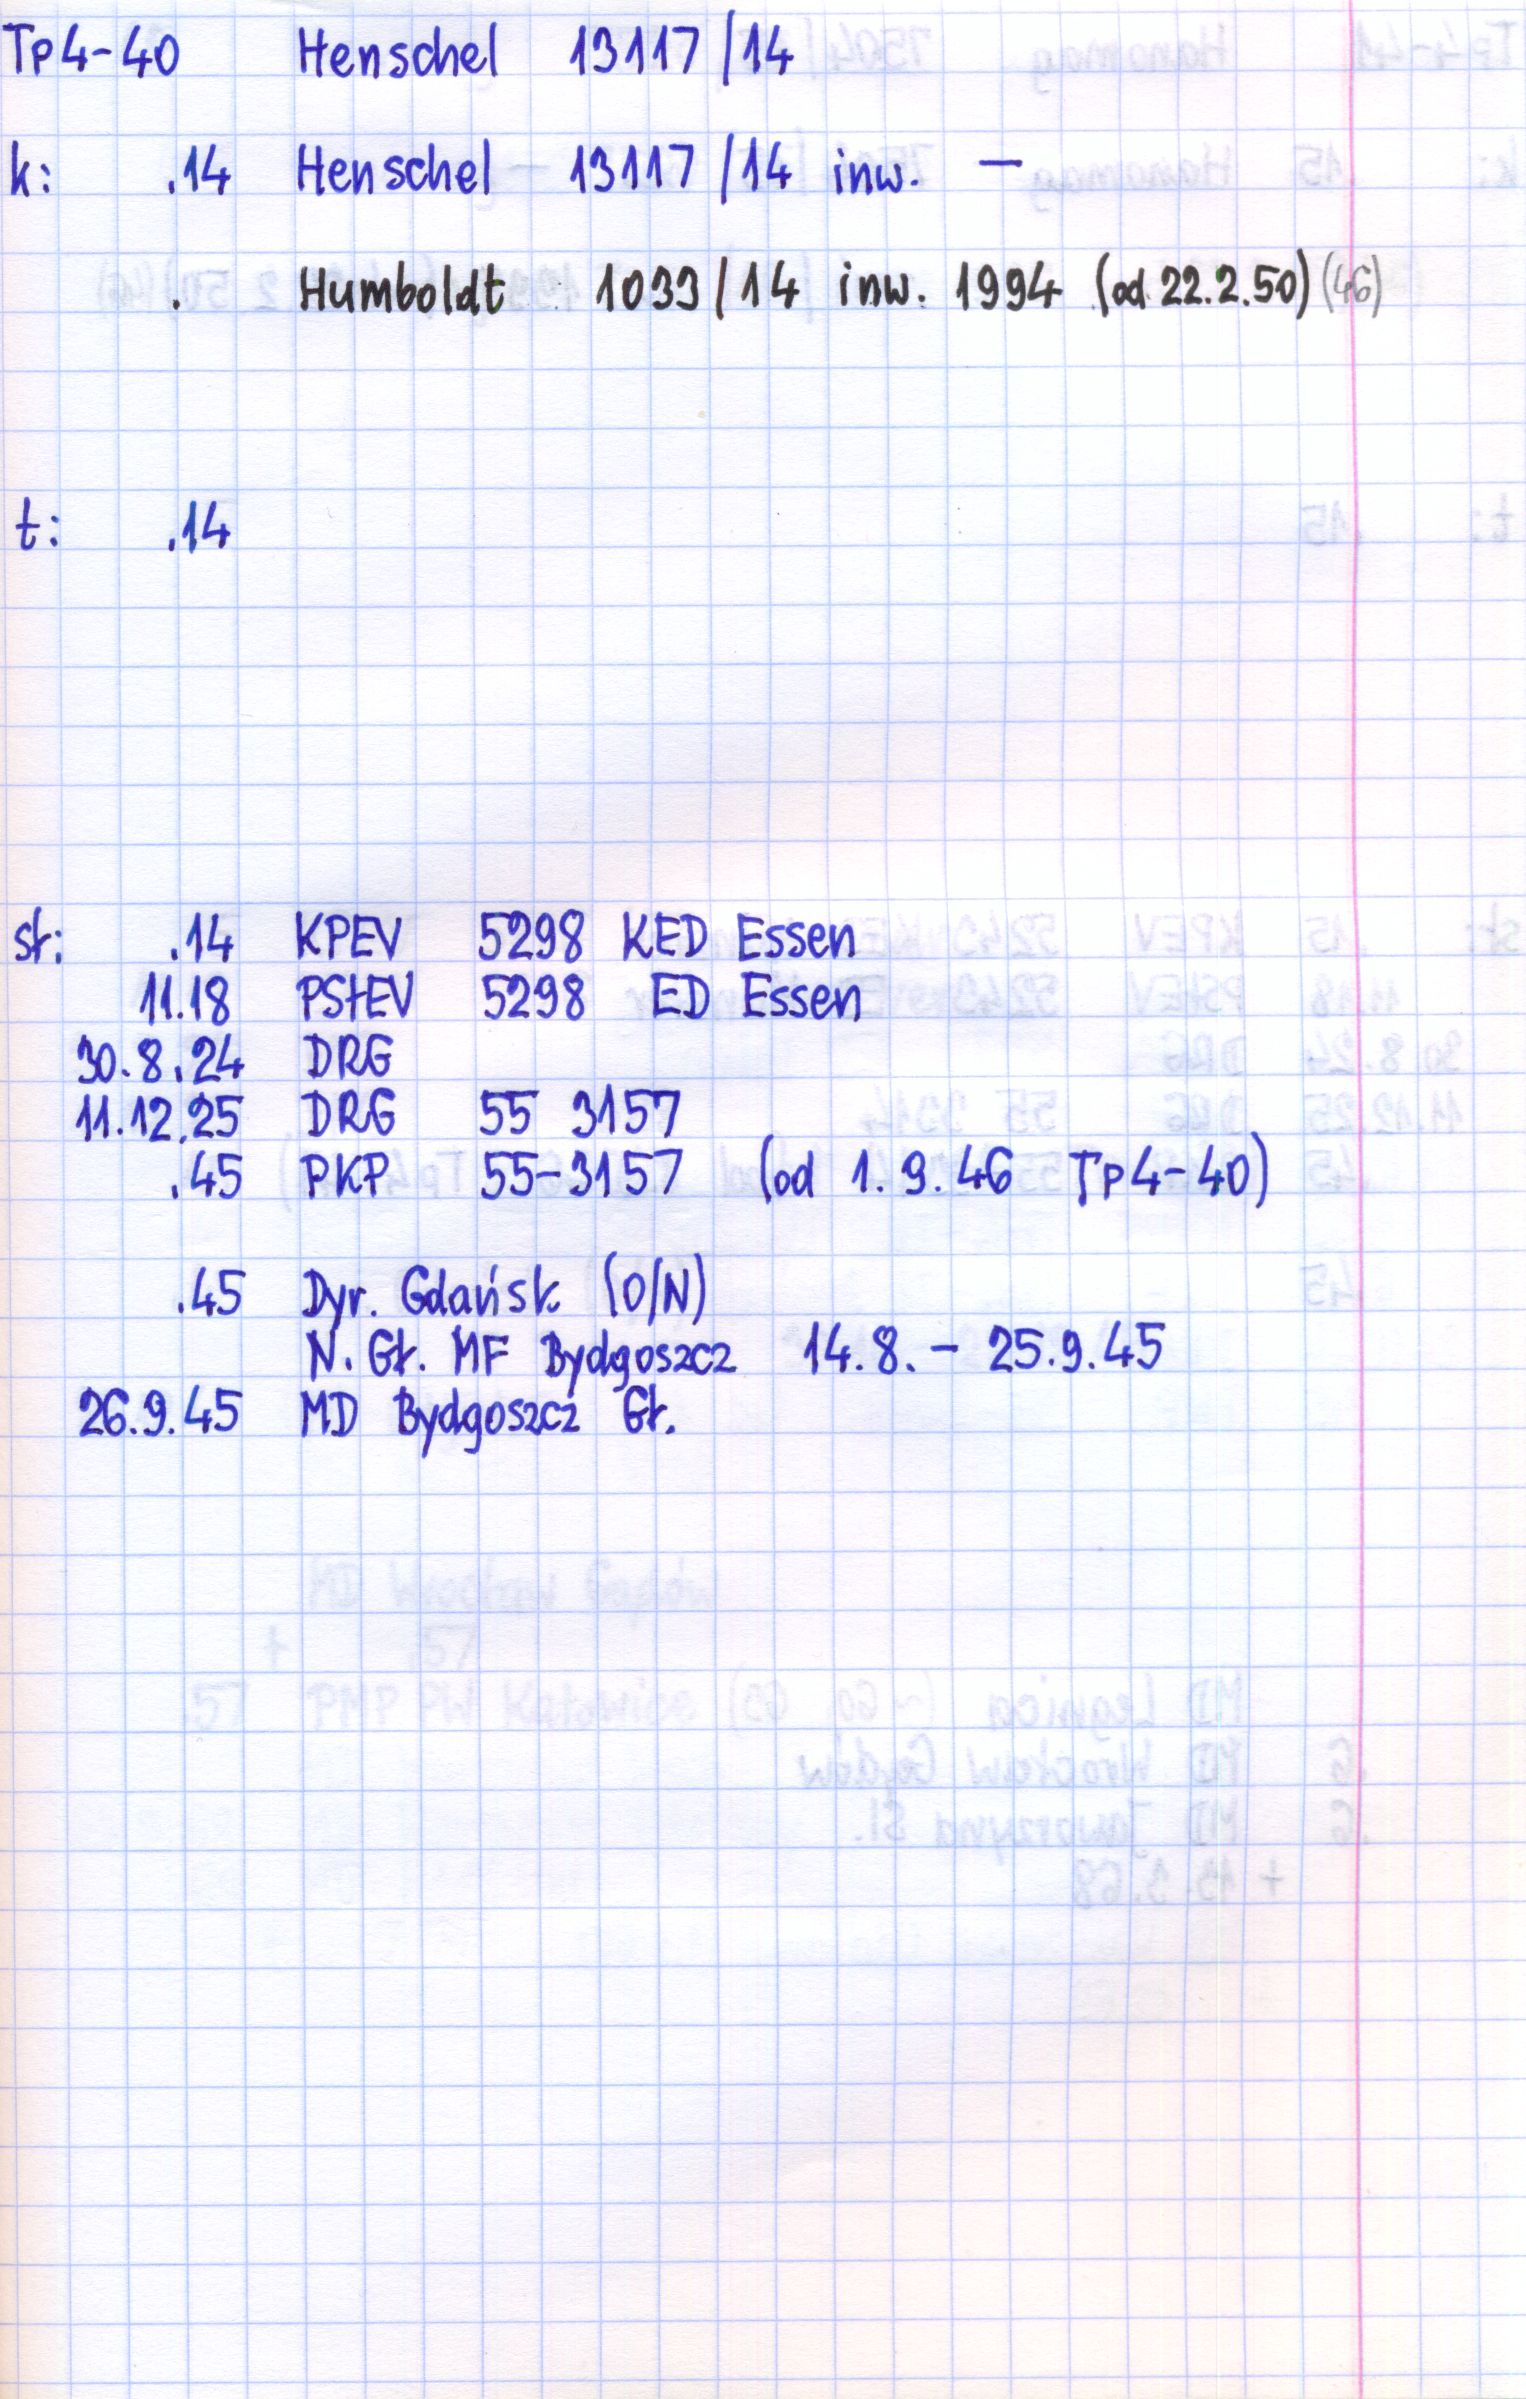 Tp4-40 Henschel 13117/14
k: .14 Henschel 13117/14 inw. —
. Humboldt 1033/14 inw. 1994 (od 22.2.50) (46)
t: .14
st: .14 KPEV 5298 KED Essen
11.18 PStEV 5298 ED Essen
30.8.24 DRG
11.12.25 DRG 55 3157
.45 PKP 55-3157 (od 1.9.46 Tp4-40)
.45 Dyr. Gdańsk (O/N)
N. Gł. MF Bydgoszcz 14.8. - 25.9.45
26.9.45 MD Bydgoszcz Gł.